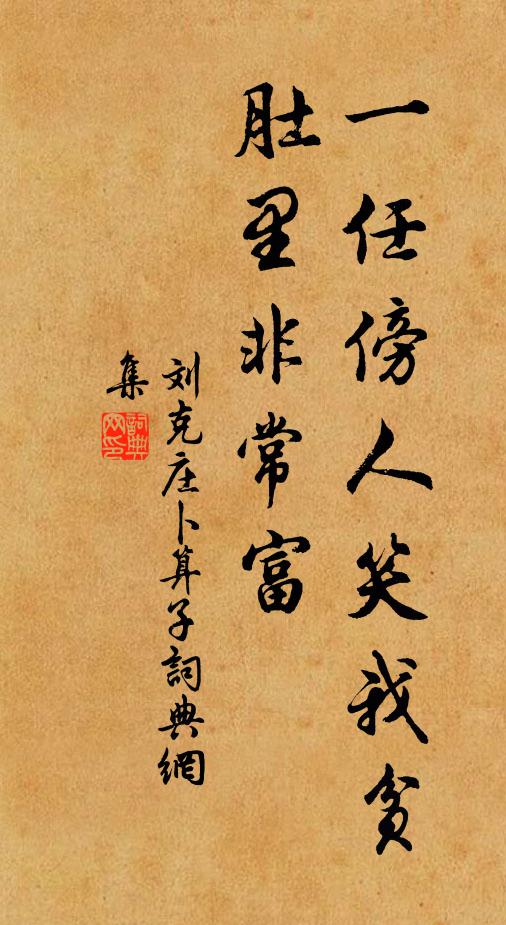 一任傍人笑我貧
肚里非常富
刘克庄卜算子詞典網
集
詞典
网印